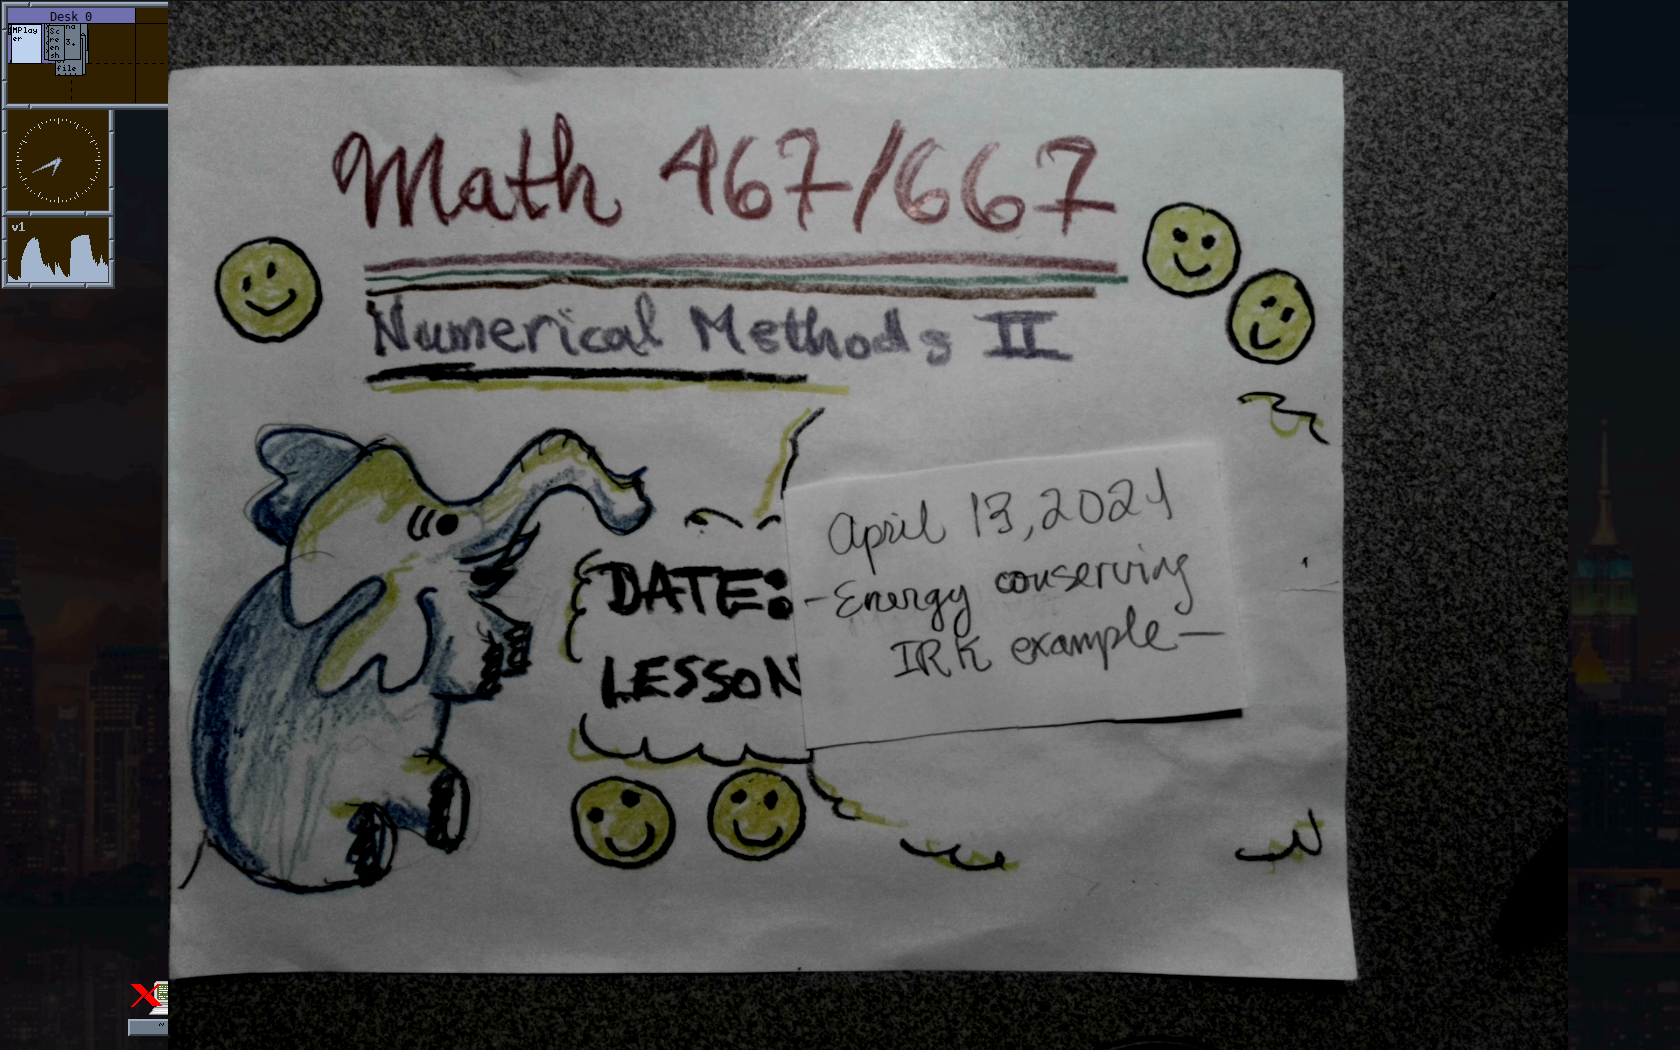 Desk 0
MPlay
er
Sc
re
en
sh
na
3.
file
v1
Math 467/667
Numerical Methods II
DATE:
LESSON
April 13, 2021
-Energy conserving
IRK example-
~